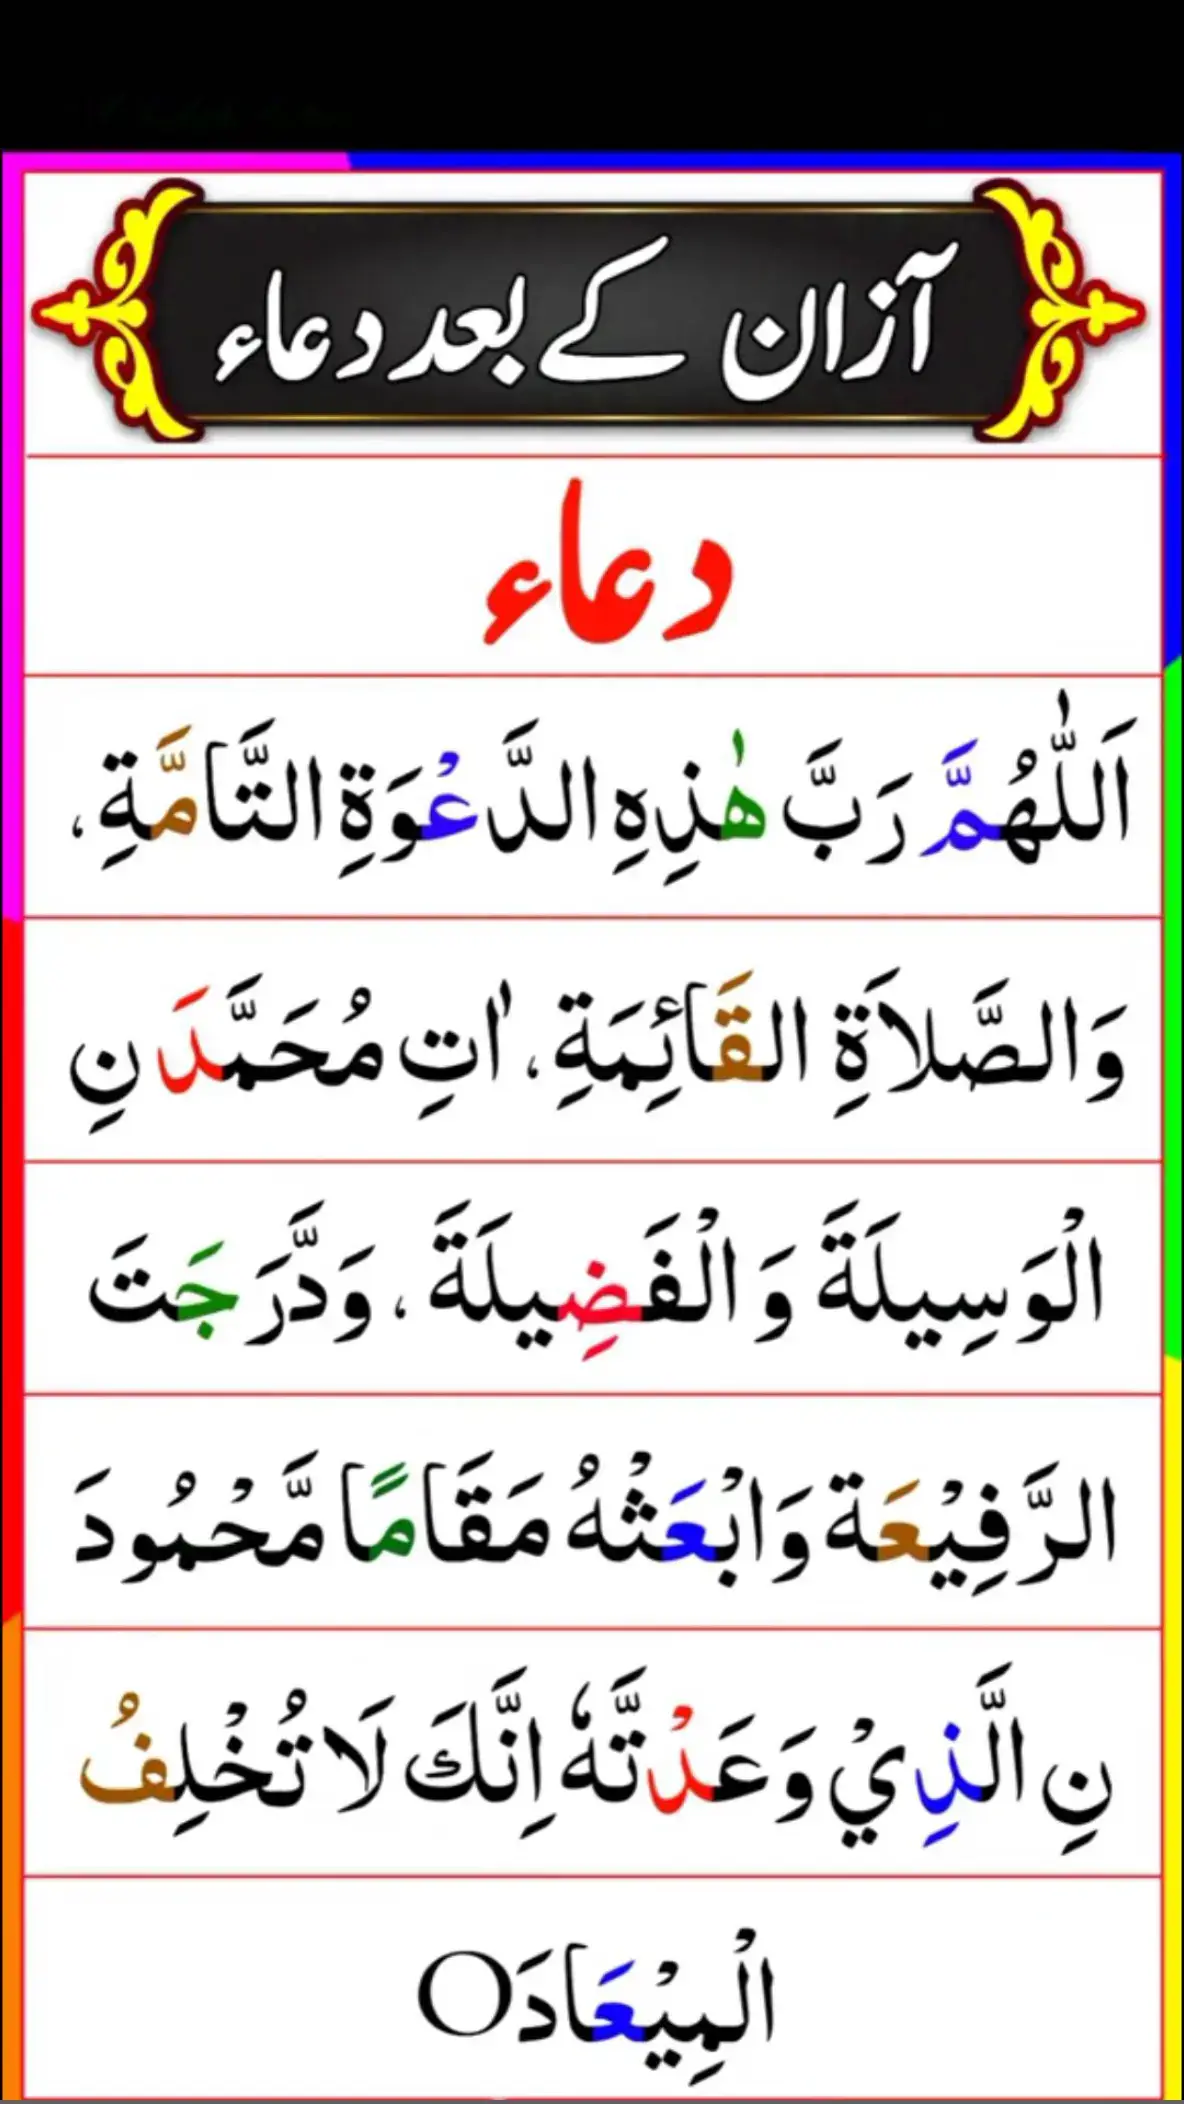 آزان کے بعد دعاء
دعاء
اَللّٰهُمَّ رَبَّ هٰذِهِ الدَّعْوَةِ التَّامَّةِ،
وَالصَّلاَةِ القَائِمَةِ، اٰتِ مُحَمَّدَ نِ
الْوَسِيلَةَ وَ الْفَضِيلَةَ، وَدَّرَجَتَ
الرَّفِيْعَة وَابْعَثْهُ مَقَامًا مَّحْمُودَ
نِ الَّذِيْ وَعَدْتَّهٗ اِنَّكَ لَا تُخْلِفُ
الْمِيْعَادَ○